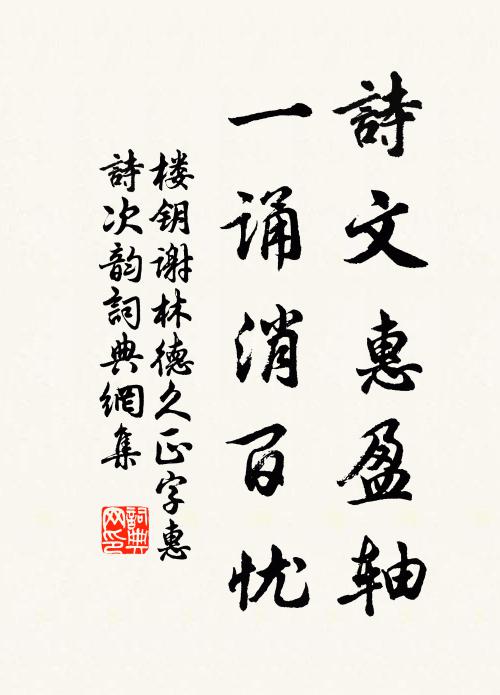 詩文惠盈轴
一诵消百忧
楼钥谢林德久正字惠
詩次韵詞典網集
詞典
网印